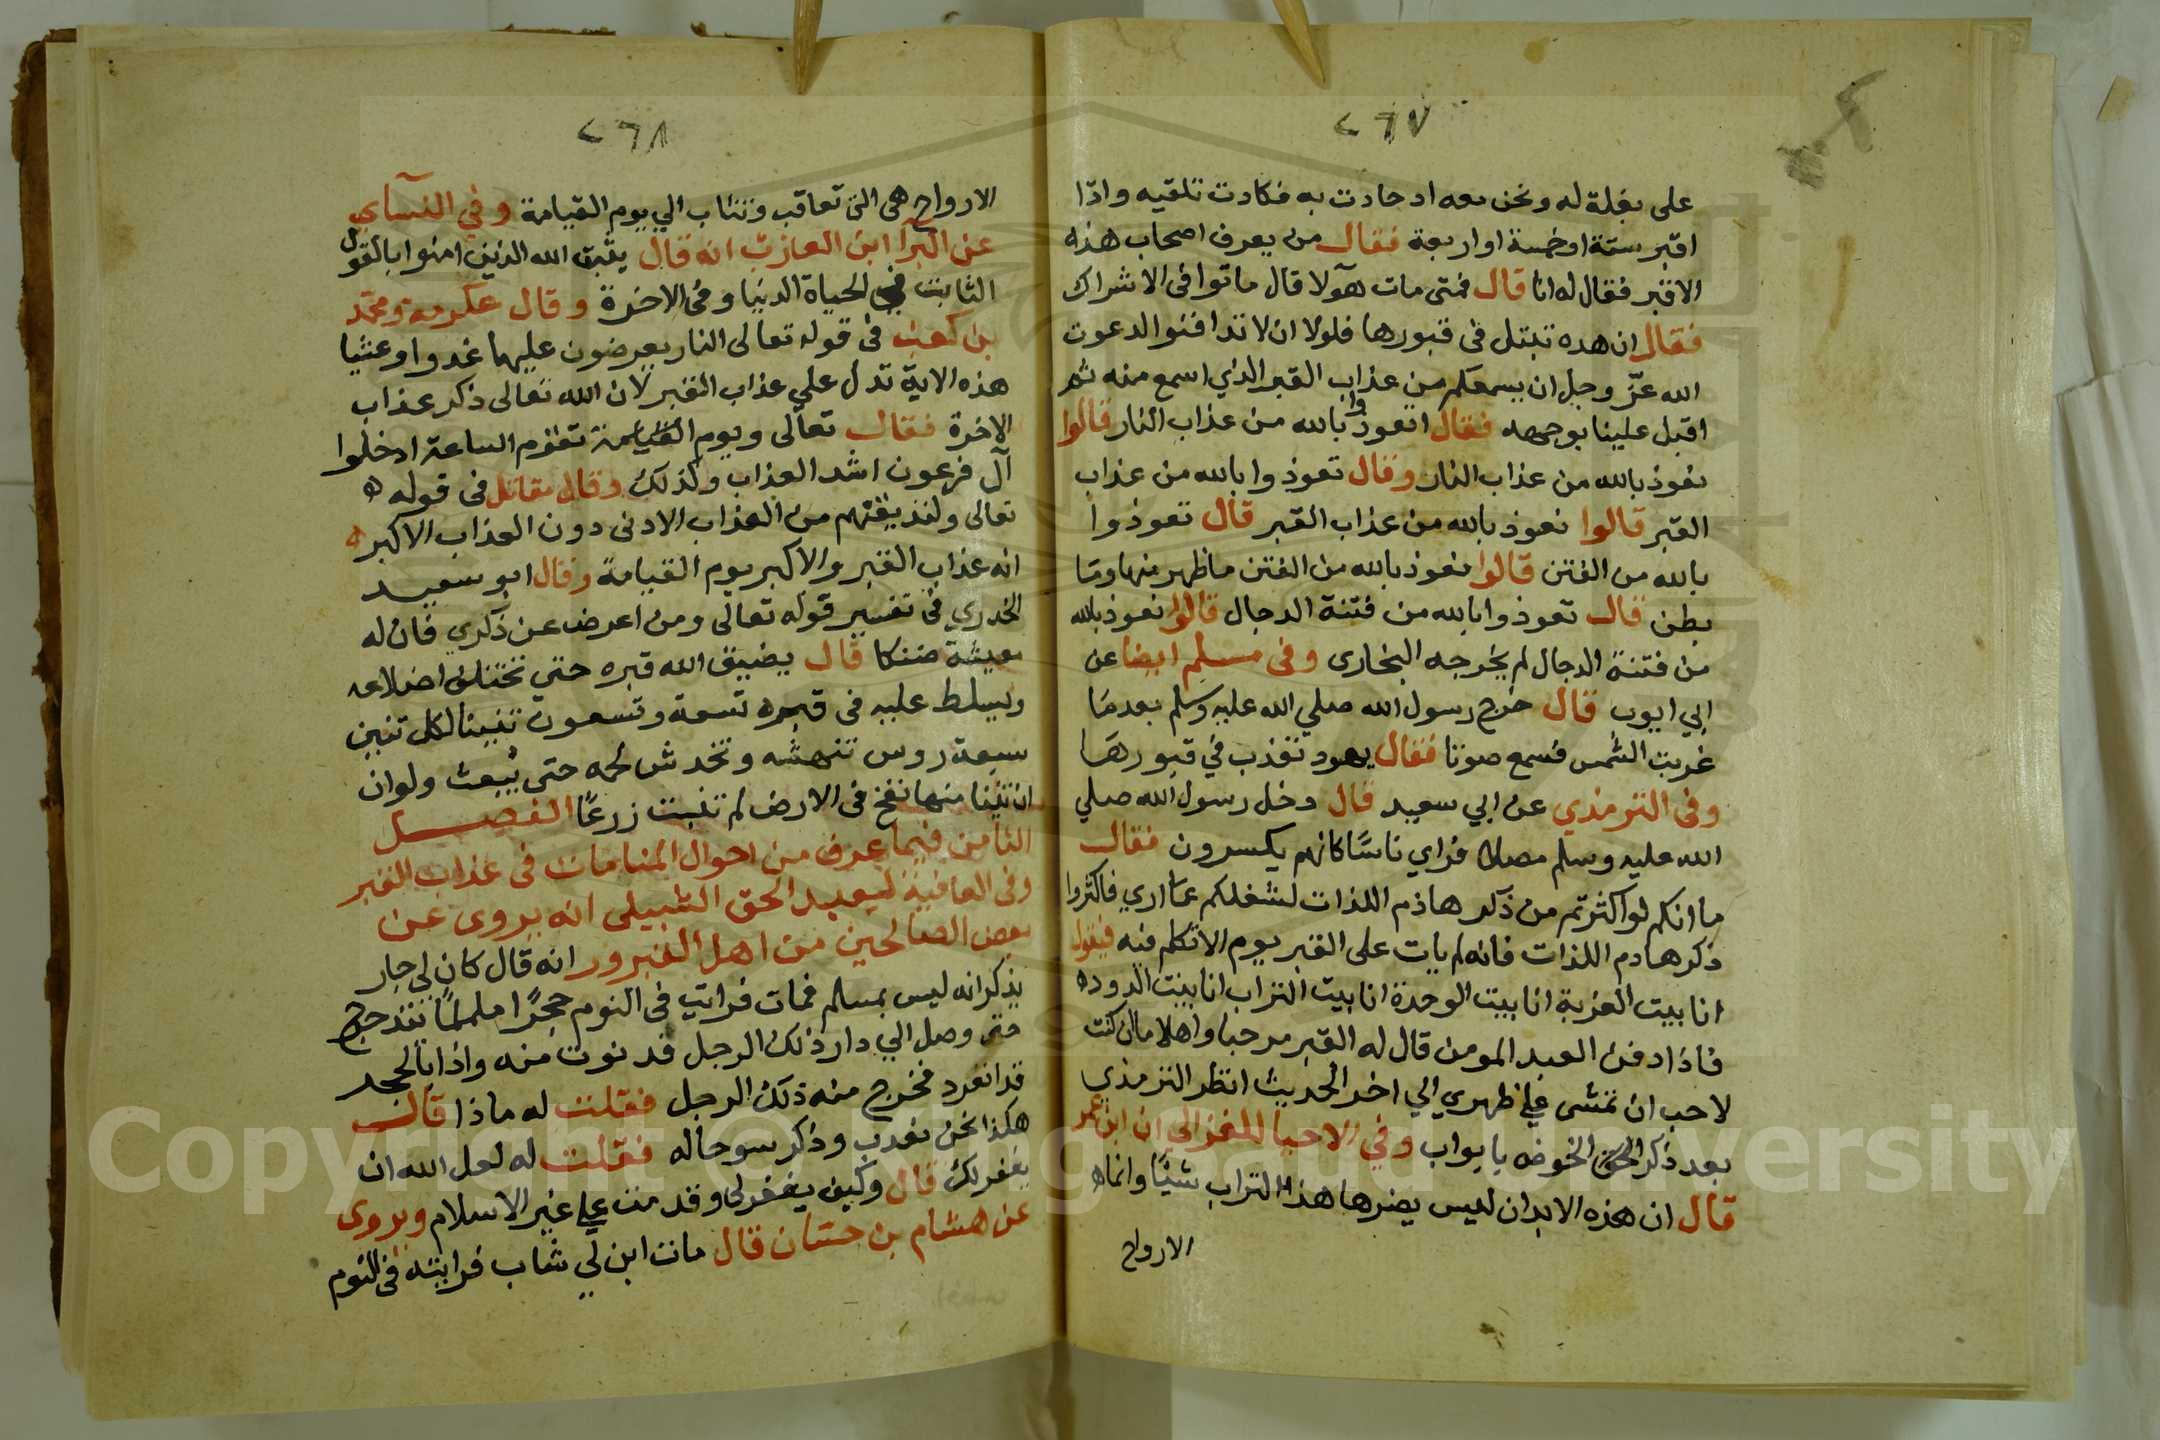 ٢٦٧
على بغلة له ونحن معه اد حادت به فكادت تلقيه واذا
اقبر ستة او خمسة او اربعة فقال من يعرف اصحاب هذه
الاقبر فقال له انا قال فمتى مات هآولا قال ماتوا فى الاشراك
فقال ان هده تبتل فى قبورها فلولا ان لا تدافنوا لدعوت
الله عزّ وجل ان يسمعكم من عذاب القبر الذي اسمع منه ثم
اقبل علينا بوجهه فقال تعوذوا بالله من عذاب النار قالوا
نعوذ بالله من عذاب النار وقال تعوذوا بالله من عذاب
القبر قالوا نعوذ بالله من عذاب القبر قال تعوذوا
بالله من الفتن قالوا نعوذ بالله من الفتن ما ظهر منها وما
بطن قال تعوذوا بالله من فتنة الدجال قالوا نعوذ بالله
من فتنة الدجال لم يخرجه البخارى وفى مسلم ايضا عن
ابي ايوب قال خرج رسول الله صلي الله عليه وسلم بعد ما
غربت الشمس فسمع صوتا فقال يهود تعذب في قبورها
وفى الترمذي عن ابي سعيد قال دخل رسول الله صلي
الله عليه وسلم مصلاه فراي ناسًا كانهم يكسرون فقال
ما انكم لو اكثرتم من ذكر هاذم اللذات لشغلكم عما اري فاكثروا
ذكر هادم اللذات فانه لم يات على القبر يوم الا تكلم فيه فيقول
انا بيت الغربة انا بيت الوحدة انا بيت التراب انا بيت الدود
فاذا دفن العبد المومن قال له القبر مرحبا واهلا مالك كنت
لاحب ان تمشى علي ظهري الي اخر الحديث انظر الترمذي
بعد ذكر الحوض بابواب وفي الاحيا للغزالى ان ابن عمر
قال ان هذه الابدان ليس يضرها هذا التراب شيًا وانما
الارواح
٢٦٨
الارواح هى التى تعاقب وتثاب الي يوم القيامة وفي النسآي
عن البرآ ابن العازب انه قال يثبت الله الذين امنوا بالقول
الثابت في الحياة الدنيا وفى الاخرة وقال عكرمة ومحمد
بن كعب فى قوله تعالى النار يعرضون عليها غدوا وعشيا
هذه الاية تدل علي عذاب القبر لان الله تعالى ذكر عذاب
الاخرة فقال تعالى ويوم القيامة تقوم الساعة ادخلوا
آل فرعون اشد العذاب وكذلك وقال مقاتل فى قوله
تعالى ولنذيقنهم من العذاب الادنى دون العذاب الاكبر
انه عذاب القبر والاكبر يوم القيامة وقال ابو سعيد
الخدري فى تفسير قوله تعالى ومن اعرض عن ذكري فان له
معيشة ضنكا قال يضيق الله قبره حتي تختلف اضلاعه
ويسلط عليه فى قبره تسعة وتسعون تنينا لكل تنين
سبعة روس تنهشه وتخدش لحمه حتى يُبعث ولو ان
ان تنينا منها نفخ فى الارض لم تنبت زرعًا الفصل
الثامن فيما عرف من احوال المنامات فى عذاب القبر
وفى العاقبة لعبد الحق الشبيلى انه يروى عن
بعض الصالحين من اهل القبرور انه قال كان لى جار
يذكر انه ليس بمسلم فمات فرايت فى النوم حجرًا ململمًا تتدحرج
حتى وصل الي دار ذلك الرجل فدنوت منه واذا بالحجر
قد انفرد فخرج منه ذلك الرجل فقلت له ماذا قال
هكذا نحن نعدب وذكر سو حاله فقلت له لعل الله ان
يغفر لك قال وكيف يغفر لى وقد مت علي غير الاسلام ويروى
عن هشام بن حسّان قال مات ابن لى شاب فرايته فى النوم
Copyright © King Saud University